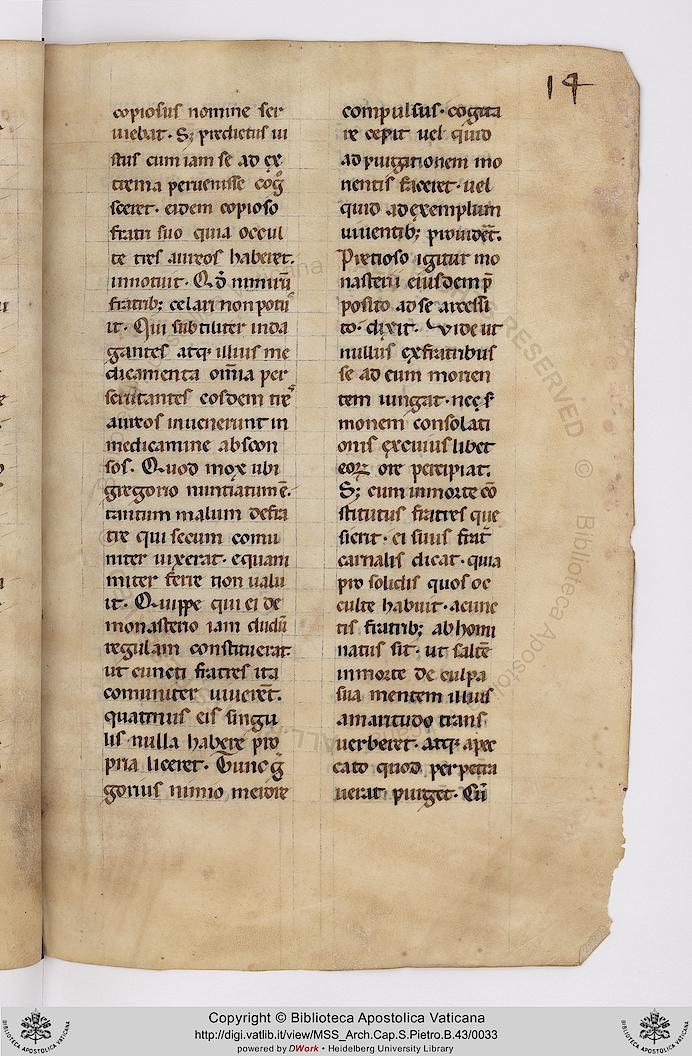 14
copiosus nomine ser
uiebat. S; predictus iu
stus cum iam se ad ex
trema peruenisse cog̃
sceret. eidem copioso
fratri suo quia occul
te tres aureos haberet.
innotuit. Qd̃ nimirũ
fratrib; celari non potu
it. Qui subtiliter inda
gantes atq; illius me
dicamenta om̃ia per
scrutantes eosdem tre
aureos inuenerunt in
medicamine abscon
sos. Quod mox ubi
gregorio nuntiatum ẽ.
tantum malum de fra
tre qui secum comu
niter uixerat. equani
miter ferre non ualu
it. Quippe qui ei de
monasterio iam dudũ
regulam constituerat
ut cuncti fratres ita
comuniter uiuerẽt.
quatinus eis singu
lis nulla habere pro
pria liceret. Tunc g̃
gorius nimio merore
compulsus. cogita
re cepit uel quid
ad purgationem mo
rientis faceret. uel
quid ad exemplum
uiuentib; prouidẽt.
Pretioso igitur mo
nasterii eiusdem p̃
posito ad se arcessi
to. dixit. Vide ut
nullus ex fratribus
se ad eum morien
tem iungat. nec s̃
monem consolati
onis ex cuius libet
eorꝝ ore percipiat.
S; cum in morte cõ
stitutus fratres que
sierit. ei suus frat̃
carnalis dicat. quia
pro solidis quos oc
culte habuit. a cunc
tis fratrib; abhomi
natus sit. ut saltẽ
in morte de culpa
sua mentem illius
amaritudo trans
uerberet. atq; a pec
cato quod perpetra
uerat purget. Cũ
Copyright © Biblioteca Apostolica Vaticana
http://digi.vatlib.it/view/MSS_Arch.Cap.S.Pietro.B.43/0033
powered by DWork • Heidelberg University Library